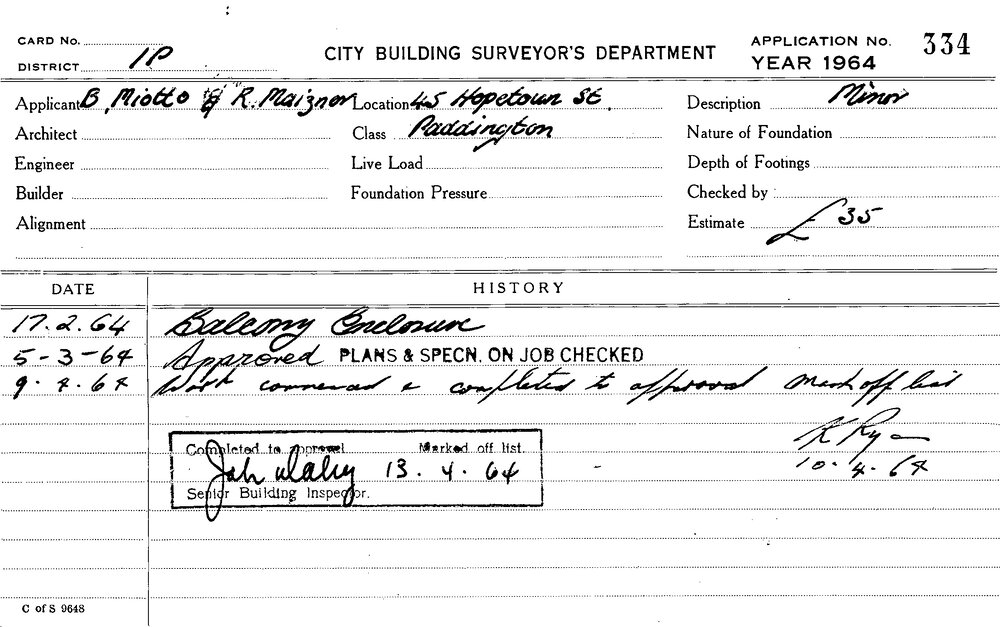 CARD No.
DISTRICT 1P
CITY BUILDING SURVEYOR'S DEPARTMENT
APPLICATION No. 334
YEAR 1964
Applicant B. Miotto & R. Maiznor Location 45 Hopetoun St. Description Minor
Architect Class Paddington Nature of Foundation
Engineer Live Load Depth of Footings
Builder Foundation Pressure Checked by
Alignment Estimate £ 35
DATE HISTORY
17.2.64 Balcony Enclosure
5-3-64 Approved PLANS & SPECN. ON JOB CHECKED
9.4.64 Work commenced & completed to approval Mark off list
K Ryan
10.4.64
Completed to approval Marked off list.
13.4.64
Senior Building Inspector.
C of S 9648